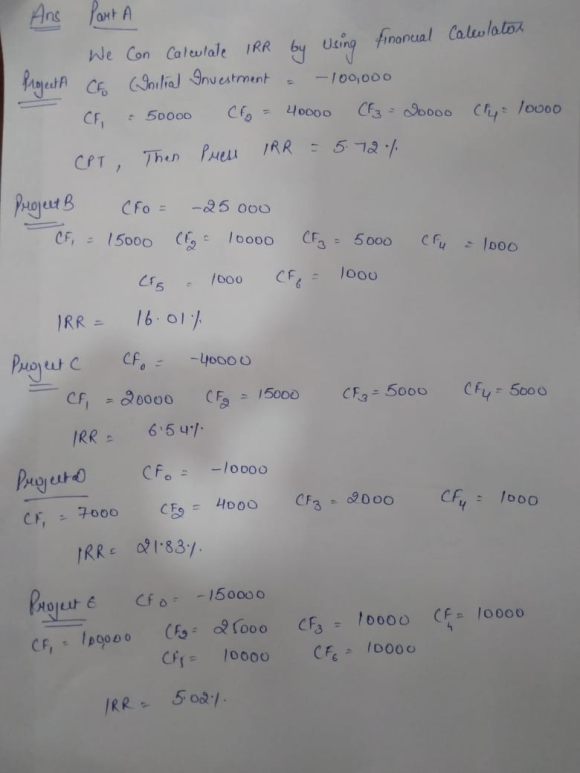 Ans Part A
We Can Calculate IRR by Using financial Calculator
Project A CF₀ (Initial Investment = -100,000
CF₁ = 50000 CF₂ = 40000 CF₃ = 20000 CF₄ = 10000
CPT, Then Press IRR = 5.72%
Project B CF0 = -25 000
CF₁ = 15000 CF₂ = 10000 CF₃ = 5000 CF₄ = 1000
CF₅ = 1000 CF₆ = 1000
IRR = 16.01%
Project C CF₀ = -40000
CF₁ = 20000 CF₂ = 15000 CF₃ = 5000 CF₄ = 5000
IRR = 6.54%
Project D CF₀ = -10000
CF₁ = 7000 CF₂ = 4000 CF₃ = 2000 CF₄ = 1000
IRR = 21.83%
Project E CF0 = -150000
CF₁ = 100,000 CF₂ = 25000 CF₃ = 10000 CF₄ = 10000
CF₅ = 10000 CF₆ = 10000
IRR = 5.02%